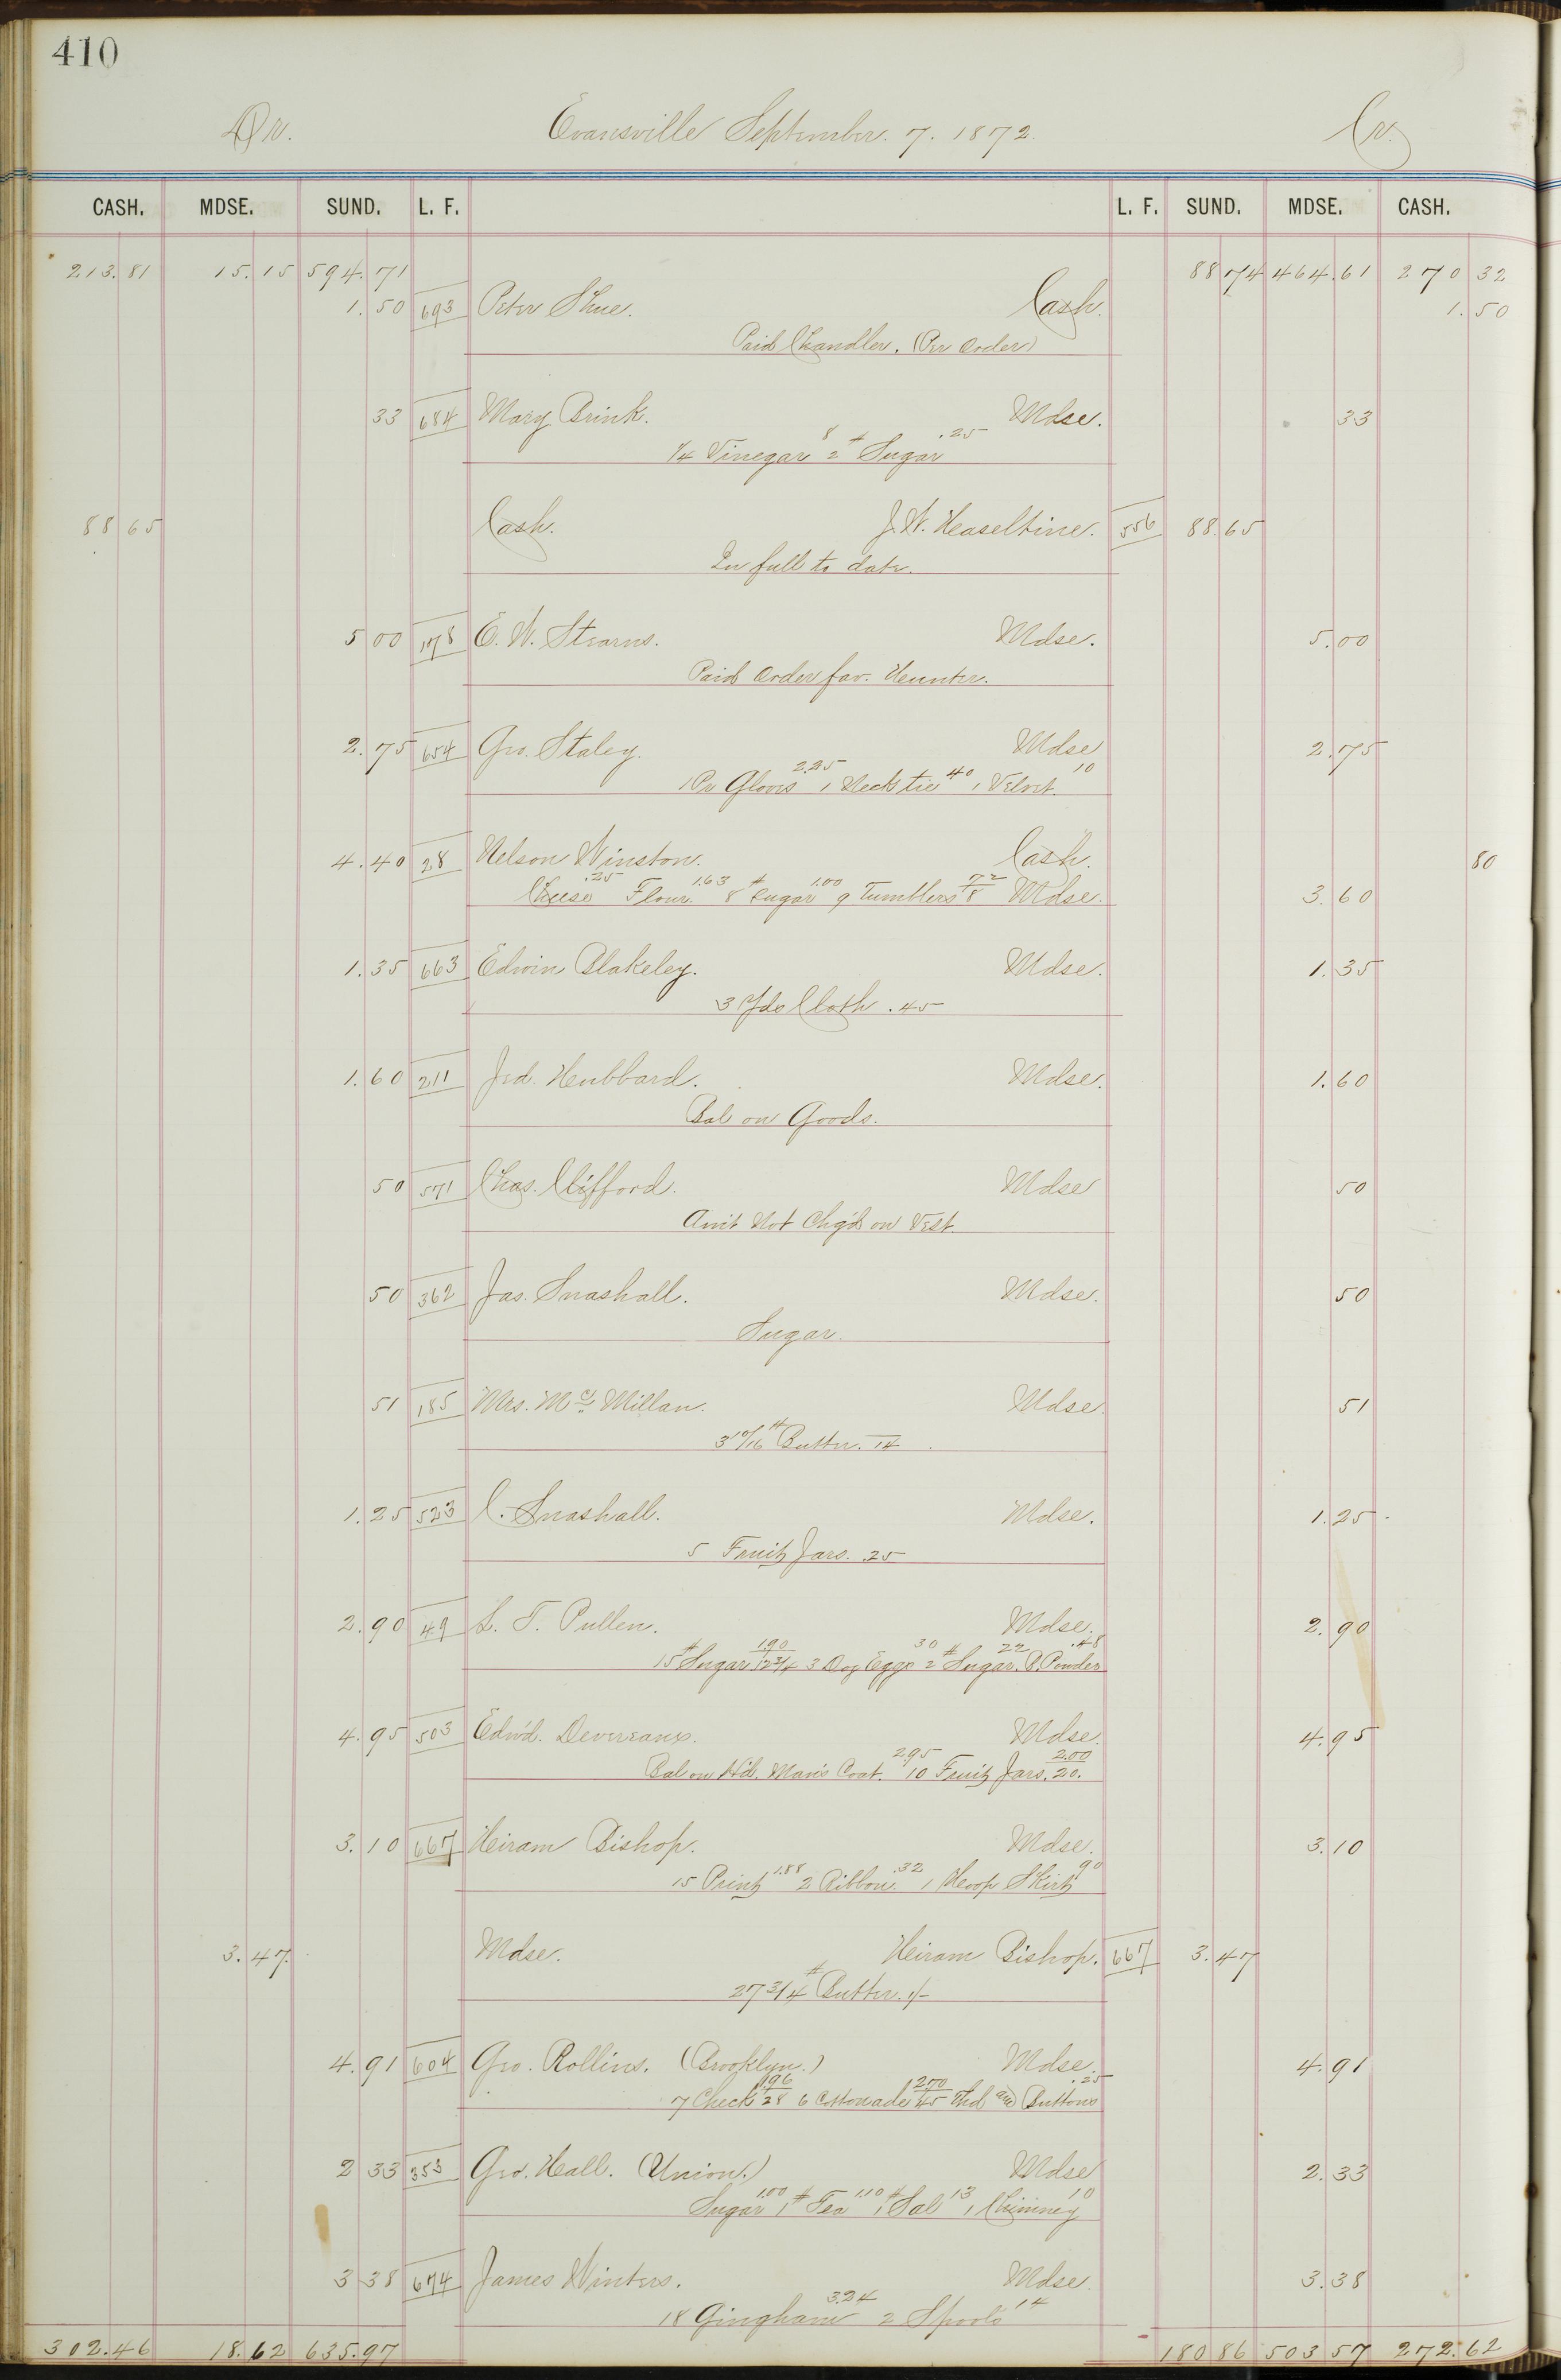 410
Dr. Evansville September. 7. 1872. Cr.
CASH. MDSE. SUND. L. F. L. F. SUND. MDSE. CASH.
213.81 15.15 594.71 88 74 464.61 270 32
1.50 693 Peter Shue. Cash. 1.50
Paid Chandler. (Per Order)
33 684 Mary Brink. Mdse. 33
1/4 Vinegar 8 2# Sugar .25
88 65 Cash. J. W. Heaseltine. 556 88.65
In full to date.
5 00 178 E. W. Stearns. Mdse. 5.00
Paid Order fav. Hunter.
2.75 654 Geo. Staley. Mdse 2.75
1 Pr Gloves 2.25 1 Neck tie 40 1 Velvet. 10
4.40 28 Nelson Winston. Cash. 80
Cheese .25 Flour. 1.63 8# Sugar 1.00 9 Tumblers 72/8 Mdse. 3.60
1.35 663 Edwin Blakeley. Mdse. 1.35
3 Yds Cloth .45
1.60 211 Jed. Hubbard. Mdse. 1.60
Bal on Goods.
50 571 Chas. Clifford. Mdse 50
Am't Not Chg'd on Vest.
50 362 Jas. Snashall. Mdse. 50
Sugar.
51 185 Mrs. Mc Millan. Mdse. 51
3 10/16# Butter. 14
1.25 523 C. Snashall. Mdse. 1.25
5 Fruit Jars. .25
2.90 49 L. T. Pullen. Mdse. 2.90
15# Sugar 1.90/12 3/4 3 Doz Eggs 30 2# Sugar. 22 B. Powder .48
4.95 503 Edw'd. Devereaux. Mdse. 4.95
Bal on H'd. Man's Coat. 2.95 10 Fruit Jars. 2.00/20.
3.10 667 Hiram Bishop. Mdse. 3.10
15 Print 1.88 2 Ribbon. .32 1 Hoop Skirt 90
3.47 Mdse. Hiram Bishop. 667 3.47
27 3/4# Butter. 1/-
4.91 604 Geo. Rollins. (Brooklyn.) Mdse. 4.91
7 Check 1.96/28 6 Cottonade 2.70/45 Thd and Buttons .25
2 33 353 Geo. Hall. (Union.) Mdse 2.33
Sugar 1.00 1# Tea 1.10 1# Sal 13 1 Chimney 10
3 38 674 James Winters. Mdse. 3.38
18 Gingham 3.24 2 Spools 14
302.46 18.62 635.97 180 86 503 57 272.62